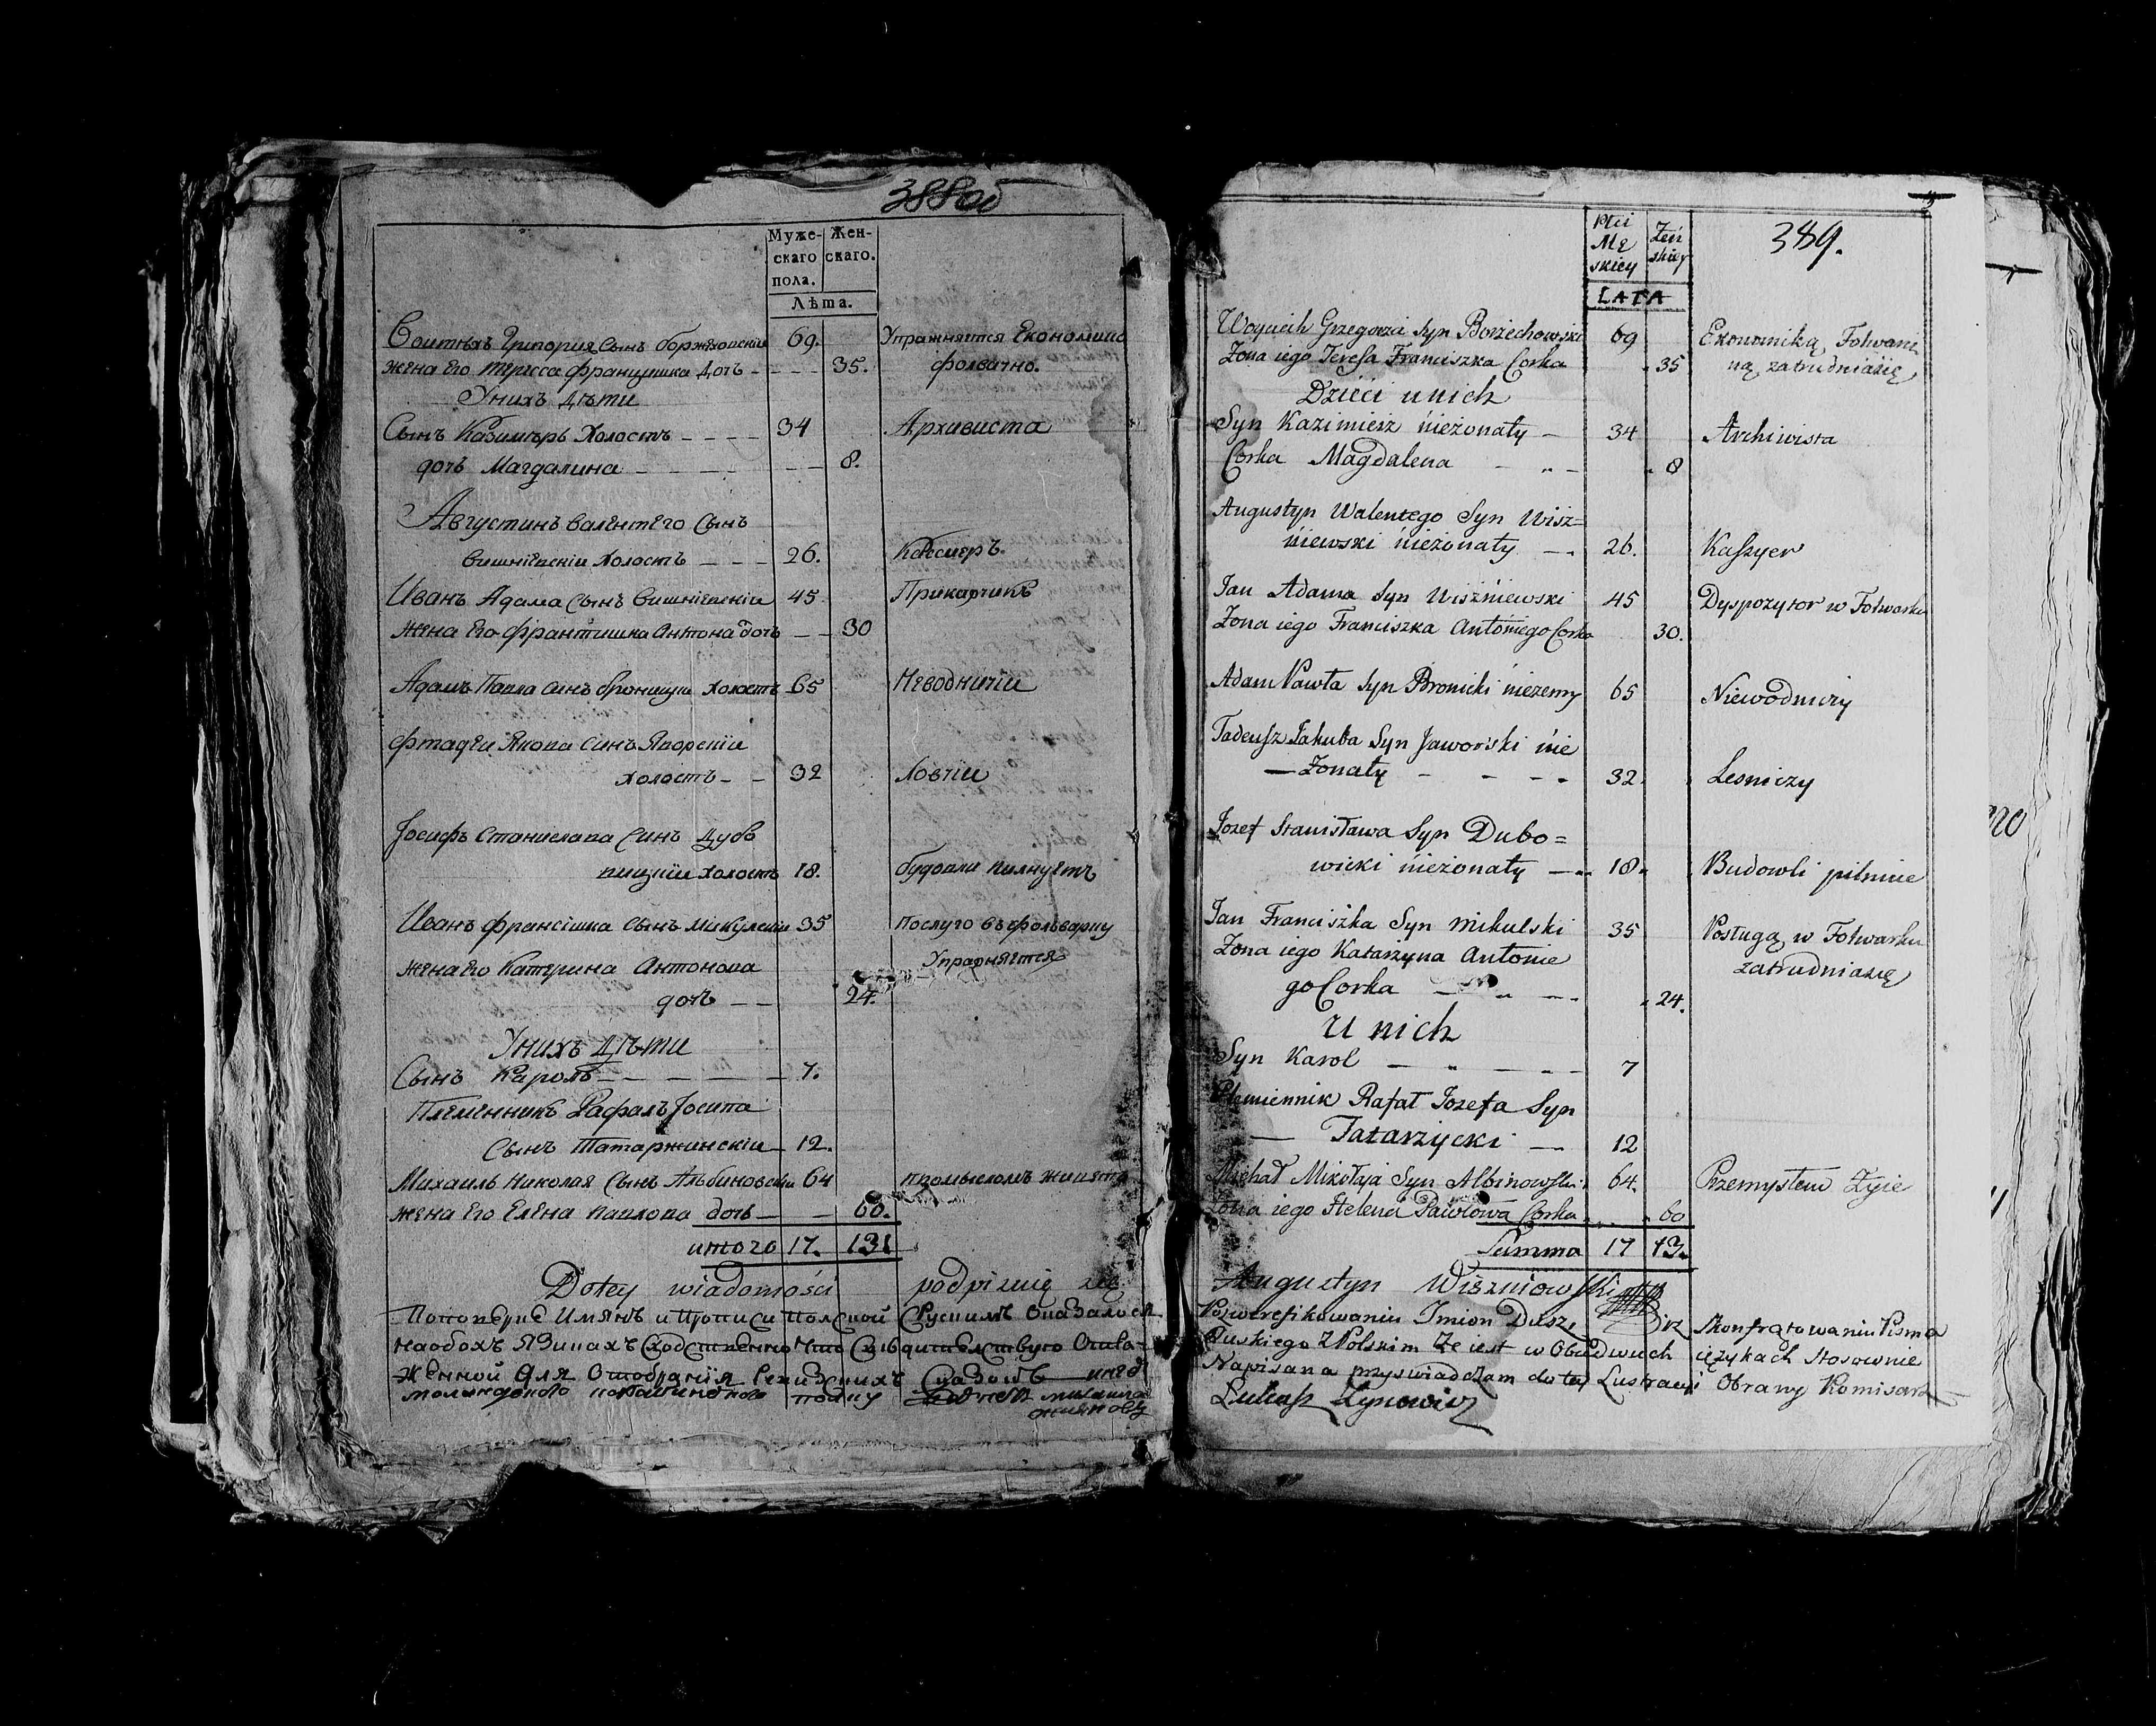 388об
Муже- Жен-
скаго скаго.
пола.
Лѣта.
Воитѣхъ Григория Сынъ боржеховский 69. Упражняется Економиею
жена Его тересса францишка Дочь 35. фолвачно.
У нихъ дѣти
Сынъ Казимѣръ Холостъ 34 Архивиста
дочь Магдалина 8.
Августинъ валентего Сынъ
вишнѣвскіи Холостъ 26. Кассиеръ
Иванъ Адама Сынъ вишнѣвскіи 45 Прикащикъ
жена Его франтишка Антона дочь 30
Адамъ Павла синъ броницки холостъ 65 Неводничіи
фтадеи Якова синъ Яворскіи
холостъ 32 Ловчіи
Іосифъ Станислава Синъ Дубо
вицкіи холостъ 18. будовли пилнуетъ
Иванъ франсішка Сынъ микулскіи 35 послуго въ фольварку
жена Его Катерина Антонова Упражняется
дочь 24.
У нихъ Дѣти
Сынъ Кароль 7.
Племенникъ Рафалъ Іосипа
Сынъ Татаржинскіи 12.
Михаилъ Николая Сынъ Альбиновски 64 промысломъ живетъ
жена Его Елена павлова дочь 60.
итого 17. 13
Do tey wiadomości podpisuię się
По поверке Имянъ и прописи полской Срускимъ Оказалося
на обохъ Язикахъ Сходственно что Свидителствую
для Отобрания Ревизскихъ Сказокъ
389.
Płci Żeń
Mę skiey
skiey
LATA
Woyciech Grzegorza Syn Borzechowski 69 Ekonomiką Folwarcz
Żona iego Teressa Franciszka Corka 35 ną zatrudnia się
Dzieci u nich
Syn Kazimiesz nieżonaty 34 Archiwista
Corka Magdalena 8
Augustyn Walentego Syn Wisz=
niewski nieżonaty 26. Kassyer
Jan Adama Syn Wiszniewski 45 Dyspozytor w Folwarku
Żona iego Franciszka Antoniego Corka 30.
Adam Pawła Syn Bronicki nieżenny 65 Niewodniczy
Tadeusz Jakuba Syn Jaworski nie
żonaty 32. Lesniczy
Jozef Stanisława Syn Dubo=
wicki nieżonaty 18. Budowli pilnuie
Jan Franciszka Syn Mikulski 35 Posługą w Folwarku
Żona iego Katarzyna Antonie zatrudnia się
go Corka 24.
U nich
Syn Karol 7
Plemiennik Rafał Jozefa Syn
Tatarzycki 12
Michał Mikołaja Syn Albinowski 64. Przemysłem Żyie
Żona iego Helena Pawłowa Corka 60
Summa 17 13.
Augustyn Wiszniowski
Po zweryfikowaniu Imion Dusz, Skonfrątowaniu Pisma
Ruskiego z Polskim że iest w Obudwuch ięzykach Stosownie
Napisana przyswiadczam do tey Lustracyi Obrany Komisarz
Łukasz Łynowicz